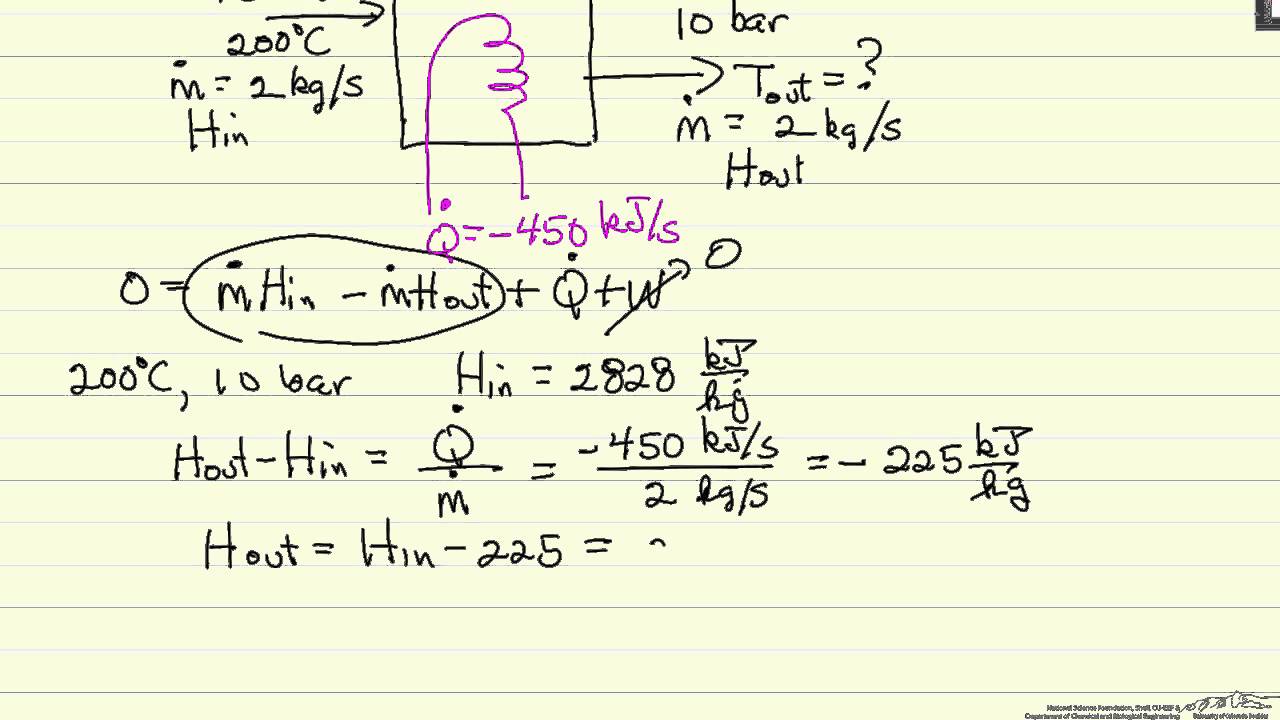 10 bar
200°C
Tout = ?
ṁ = 2 kg/s
ṁ = 2 kg/s
Hin
Hout
Q̇ = -450 kJ/s
0 = ṁHin - ṁHout + Q̇ + W 0
200°C, 10 bar Hin = 2828 kJ/kg
Hout - Hin = Q̇/ṁ = -450 kJ/s / 2 kg/s = - 225 kJ/kg
Hout = Hin - 225 =
National Science Foundation, Shell, CU-EEF &
Department of Chemical and Biological Engineering University of Colorado Boulder